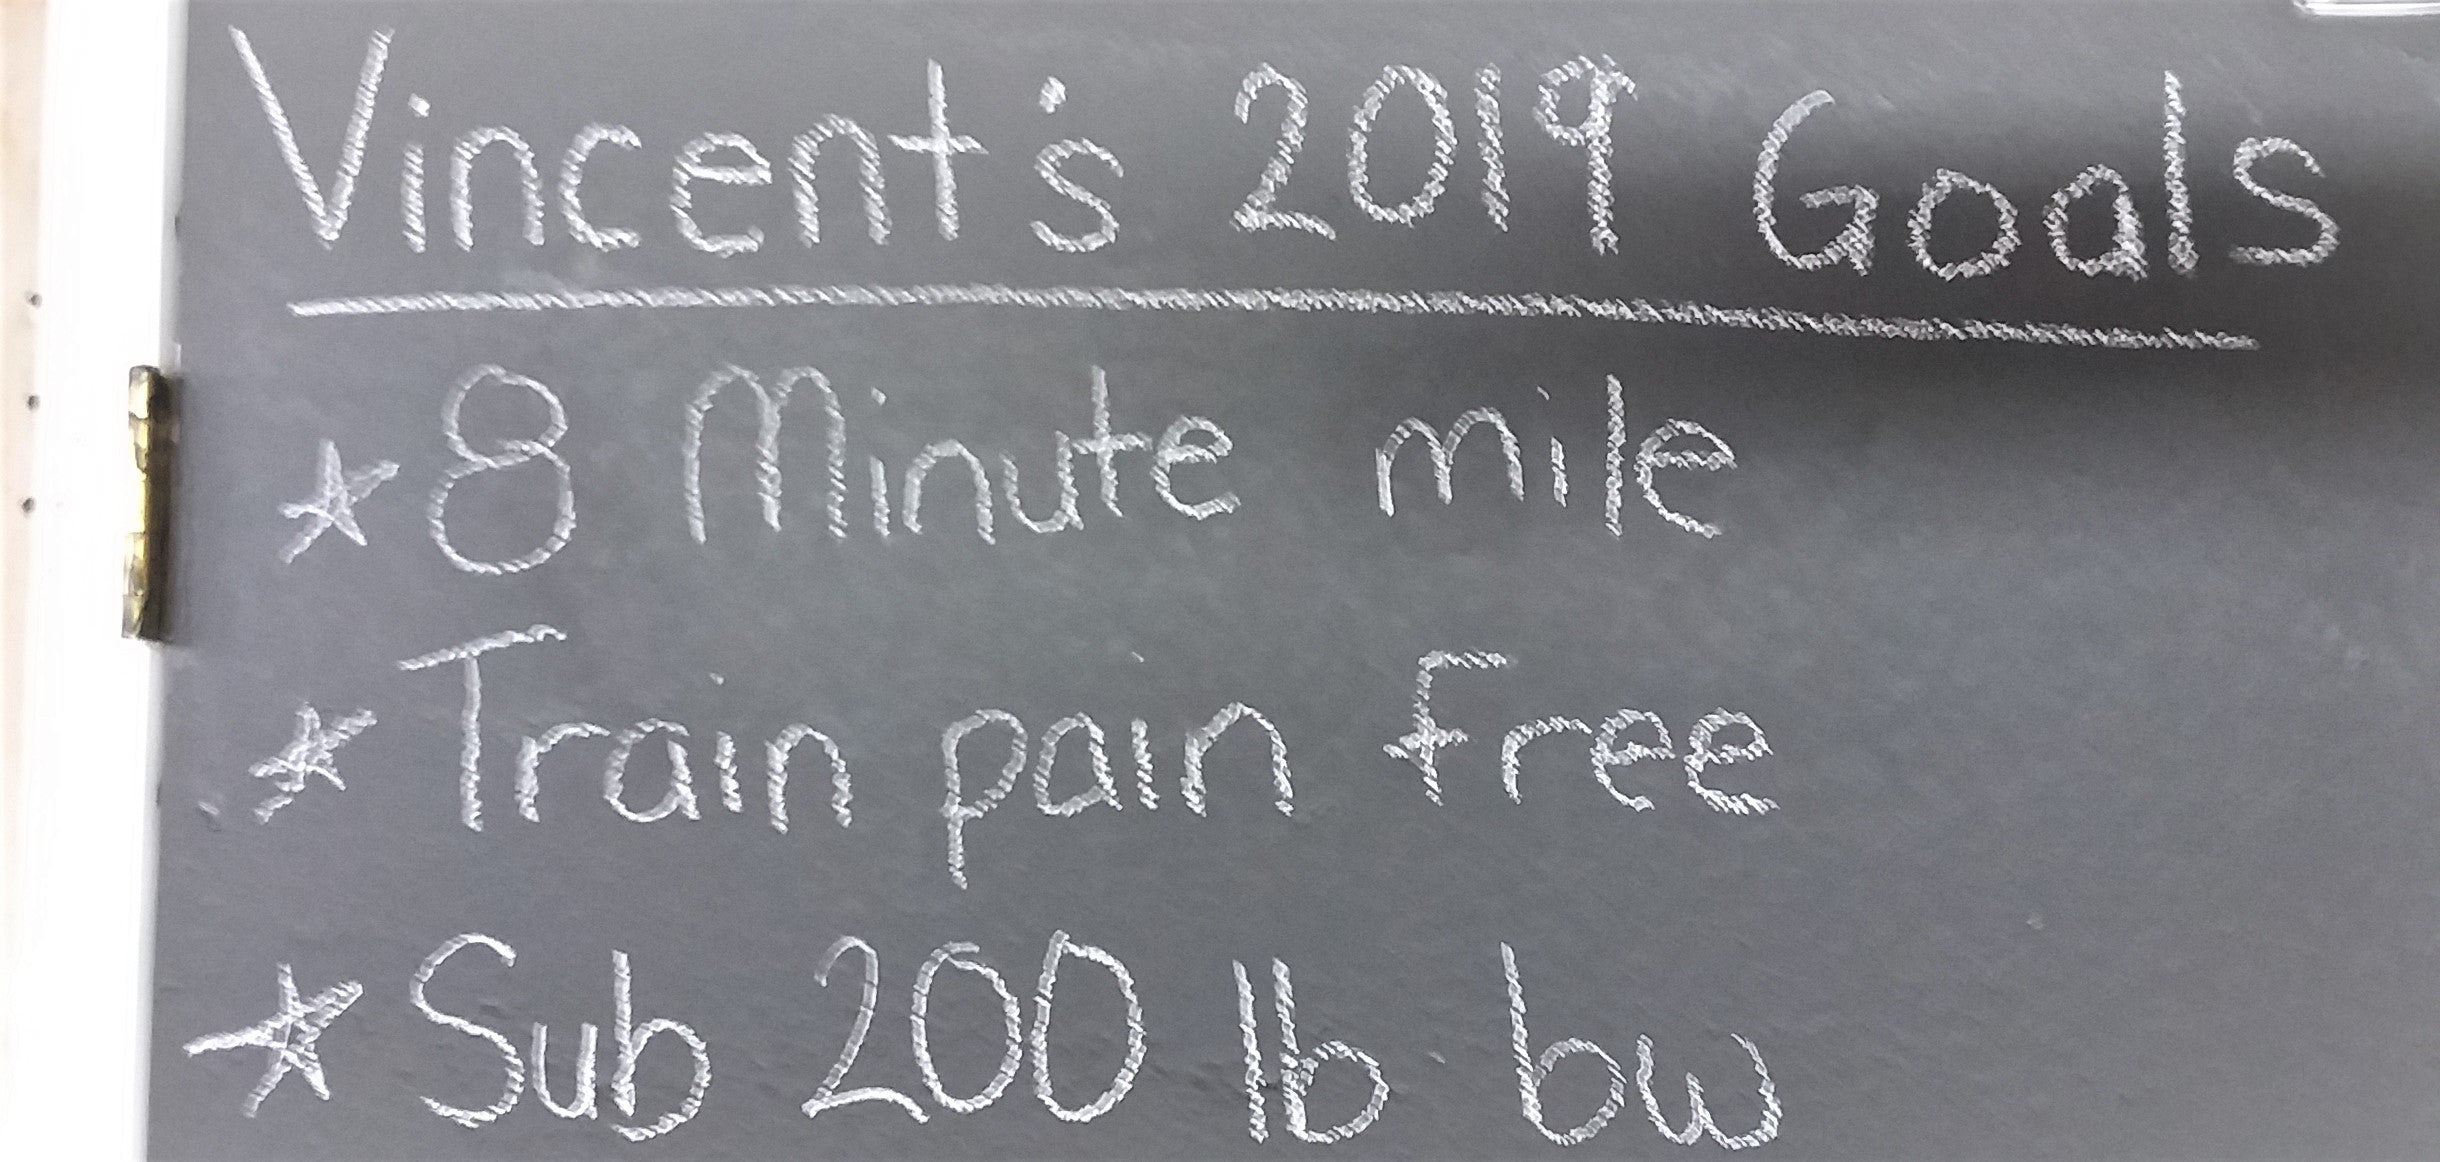 Vincent's 2019 Goals
☆ 8 Minute mile
☆ Train pain Free
☆ Sub 200 lb bw